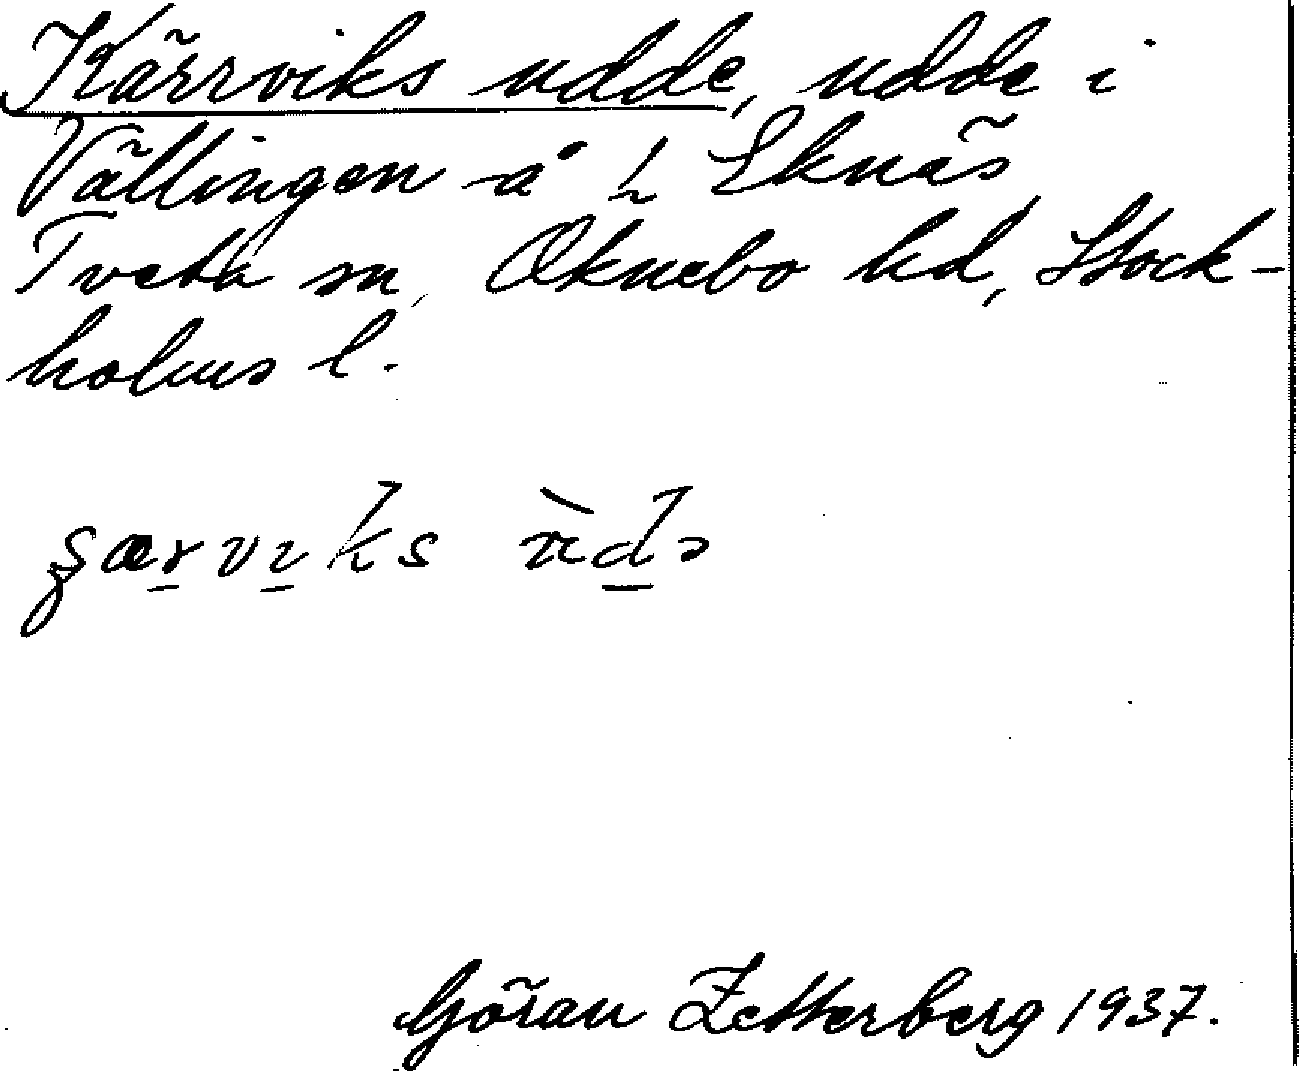 Kärrviks udde, udde i
Vällingen å h Eknäs
Tveta sn, Öknebo hd, Stock-
holms l.
Göran Zetterberg 1937.